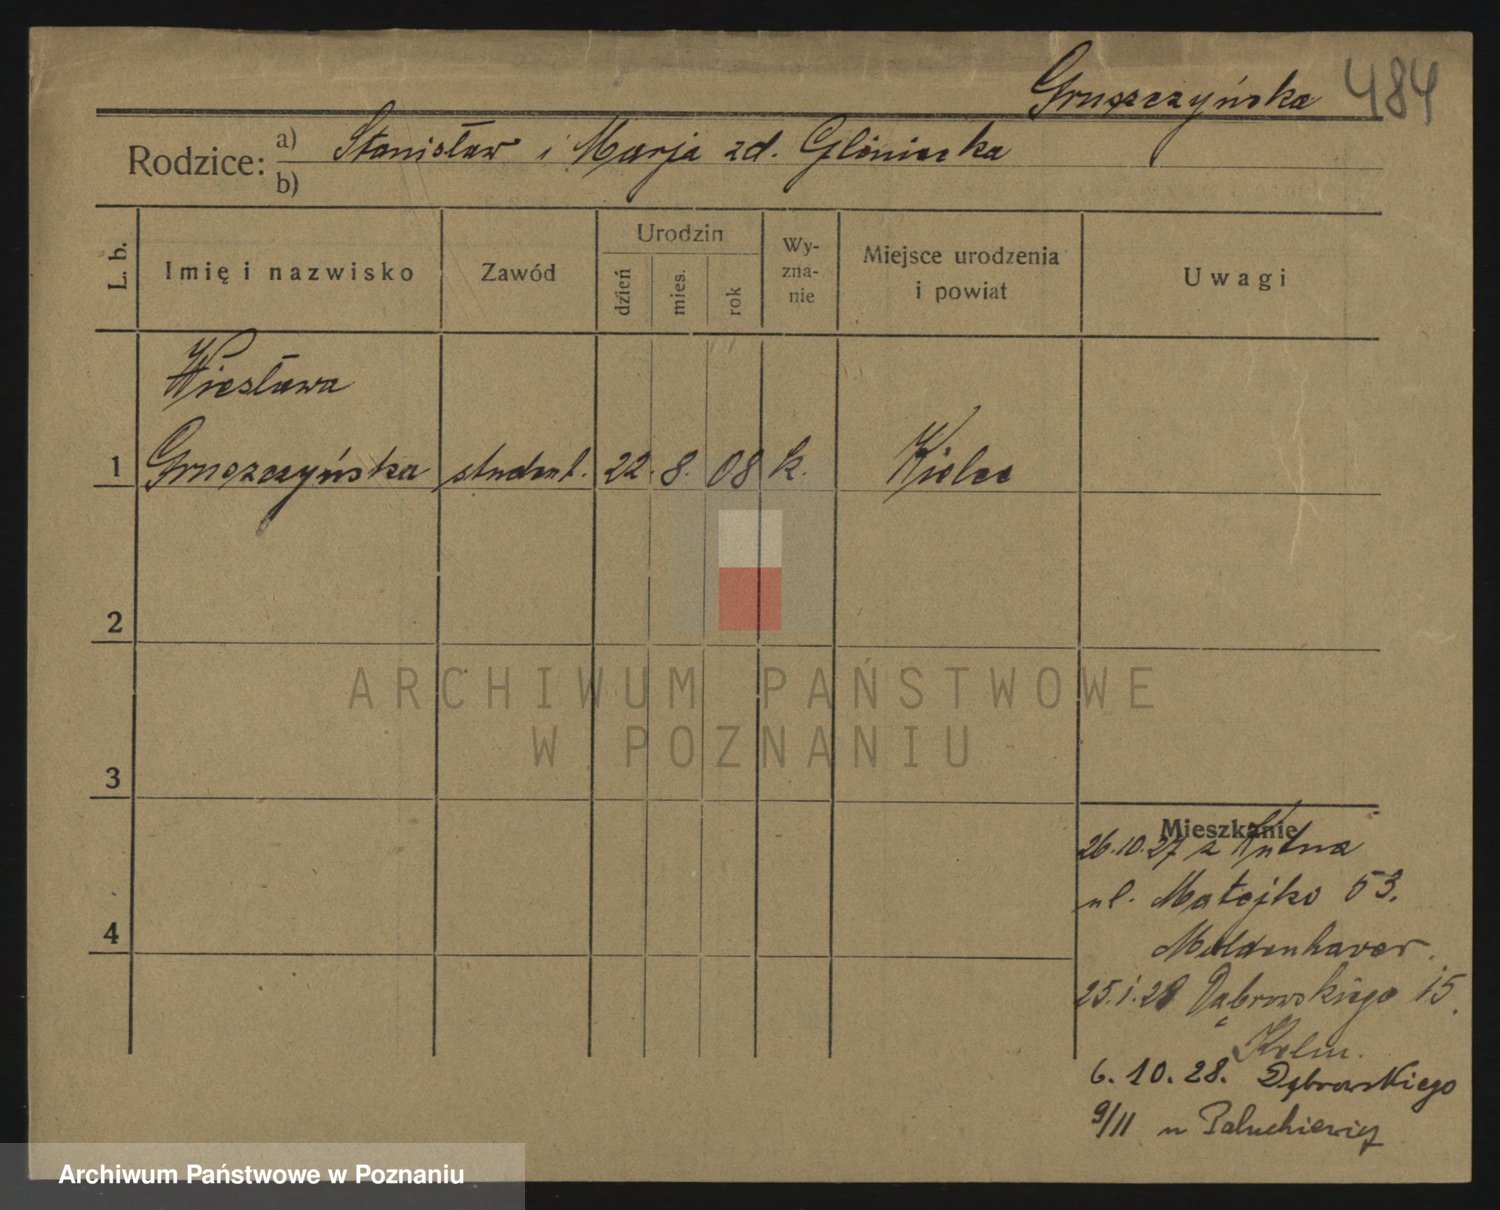 Gruszczyńska 484
Rodzice: a) Stanisław i Marja zd. Gliniecka
b)
L. b. Imię i nazwisko Zawód Urodzin dzień mies. rok Wyznanie Miejsce urodzenia i powiat Uwagi
Wiesława
1 Gruszczyńska student. 22. 8. 08 k. Kielce
2
ARCHIWUM PAŃSTWOWE
W POZNANIU
3
Mieszkanie
26.10.27 z Kutna
ul. Matejko 53.
4
Moldenhaver.
25.1.28 Dąbrowskiego 15.
Kelm.
6.10.28. Dąbrowskiego
9/11 u Paluchiewicz
Archiwum Państwowe w Poznaniu